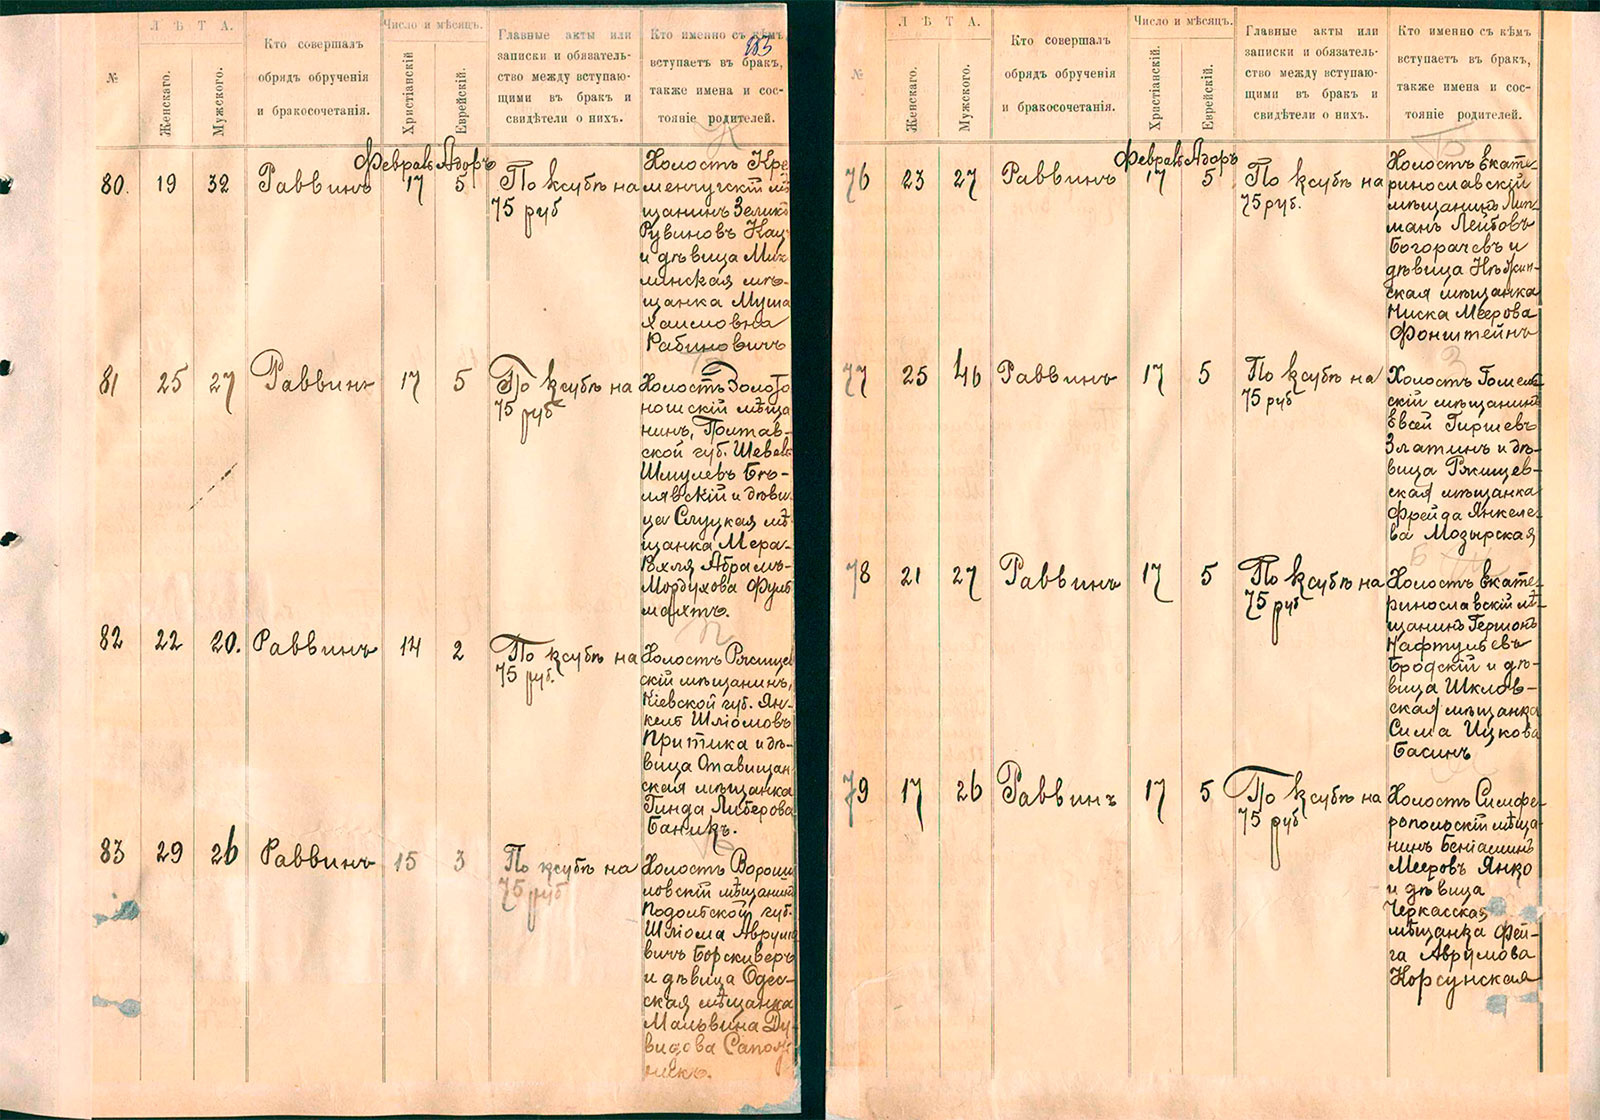 Л Ѣ Т А.
Число и мѣсяцъ.
№
Женскаго.
Мужского.
Кто совершалъ
обрядъ обрученія
и бракосочетанія.
Христіанскій
Еврейскій.
Главные акты или
записки и обязатель-
ство между вступаю-
щими въ бракъ и
свидѣтели о нихъ.
Кто именно съ кѣмъ
вступаетъ въ бракъ,
также имена и сос-
тояніе родителей.
Февраль Адоръ
80. 19 32 Раввинъ 17 5
По ксубѣ на
75 руб
Холостъ Кре
менчугскій мѣ
щанинъ Зеликъ
Рувиновъ Кац
и дѣвица
минская мѣ-
щанка Муша
Хаимовна
Рабиновичъ
81 25 27 Раввинъ 17 5
По ксубѣ на
75 руб
Холостъ Золото
ношскій мѣща
нинъ, Полтав-
ской губ. Шевель
Шмулевъ Бѣ-
лявскій и дѣви
ца Слуцкая мѣ
щанка Мера-
Рохля Абрамъ-
Мордухова
82 22 20. Раввинъ 14 2
По ксубѣ на
75 руб.
Холостъ Ржище
скій мѣщанинъ,
Кіевской губ. Ян-
кель Шліомовъ
Притика и дѣ-
вица Ставищан
ская мѣщанка
Гинда Либерова
Баникъ.
83 29 26 Раввинъ 15 3
По ксубѣ на
75 руб
Холостъ Вороши
ловскій мѣщанинъ
Подольской губ.
Шліома Аврумо
вичъ Борскиверъ
и дѣвица Одес-
ская мѣщанка
Мальвина Ду-
видова
Л Ѣ Т А.
Число и мѣсяцъ.
№
Женскаго.
Мужского.
Кто совершалъ
обрядъ обрученія
и бракосочетанія.
Христіанскій
Еврейскій.
Главные акты или
записки и обязатель-
ство между вступаю-
щими въ бракъ и
свидѣтели о нихъ.
Кто именно съ кѣмъ
вступаетъ въ бракъ,
также имена и сос-
тояніе родителей.
Февраль Адоръ
76 23 27 Раввинъ 17 5
По ксубѣ на
75 руб.
Холостъ Екате-
ринославскій
мѣщанинъ Лип-
манъ Лейбовъ
Богорачевъ и
дѣвица Нѣжин-
ская мѣщанка
Ниска Меерова
Фонштейнъ
77 25 46 Раввинъ 17 5
По ксубѣ на
75 руб
Холостъ Гомель
скій мѣщанинъ
Евсей Гиршевъ
Златинъ и дѣ-
вица Ржищев-
ская мѣщанка
Фрейда Янкеле-
ва Мозырская
78 21 27 Раввинъ 17 5
По ксубѣ на
75 руб
Холостъ Екате-
ринославскій мѣ-
щанинъ Гершонъ
Нафтульевъ
Бродскій и дѣ-
вица Шклов-
ская мѣщанка
Сима Ицкова
Басинъ
79 17 26 Раввинъ 17 5
По ксубѣ на
75 руб
Холостъ Симфе-
ропольскій мѣща-
нинъ Беніаминъ
Мееровъ Янко
и дѣвица
Черкасская
мѣщанка Фей-
га Аврумова
Корсунская